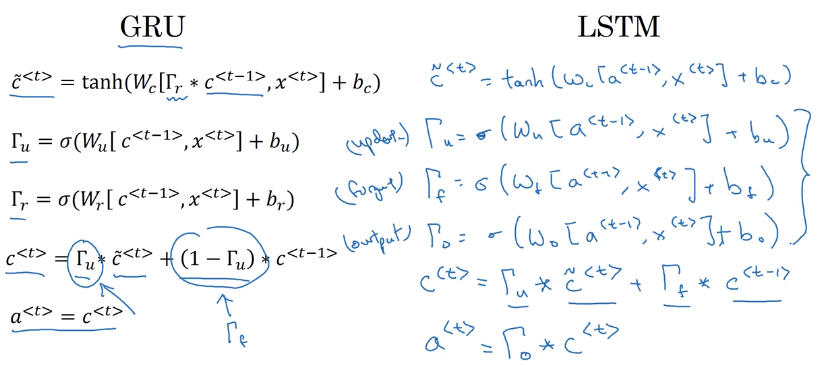 GRU
c̃<t> = tanh(Wc[Γr * c<t-1>, x<t>] + bc)
Γu = σ(Wu[ c<t-1>, x<t>] + bu)
Γr = σ(Wr[ c<t-1>, x<t>] + br)
c<t> = Γu * c̃<t> + (1 − Γu) * c<t-1>
Γf
a<t> = c<t>
LSTM
c̃<t> = tanh(Wc[a<t-1>, x<t>] + bc)
(update) Γu = σ(Wu[a<t-1>, x<t>] + bu)
(forget) Γf = σ(Wf[a<t-1>, x<t>] + bf)
(output) Γo = σ(Wo[a<t-1>, x<t>] + bo)
c<t> = Γu * c̃<t> + Γf * c<t-1>
a<t> = Γo * c<t>